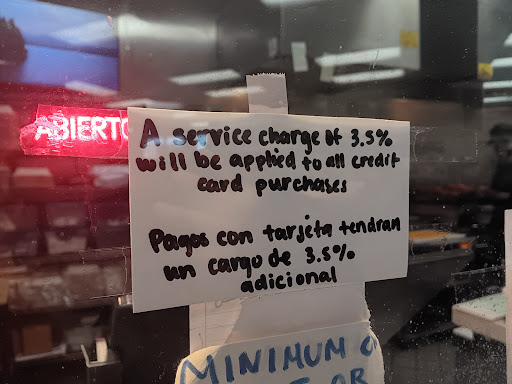 ABIERTO
A service charge of 3.5%
will be applied to all credit
card purchases
Pagos con tarjeta tendran
un cargo de 3.5%
adicional
MINIMUM
OR